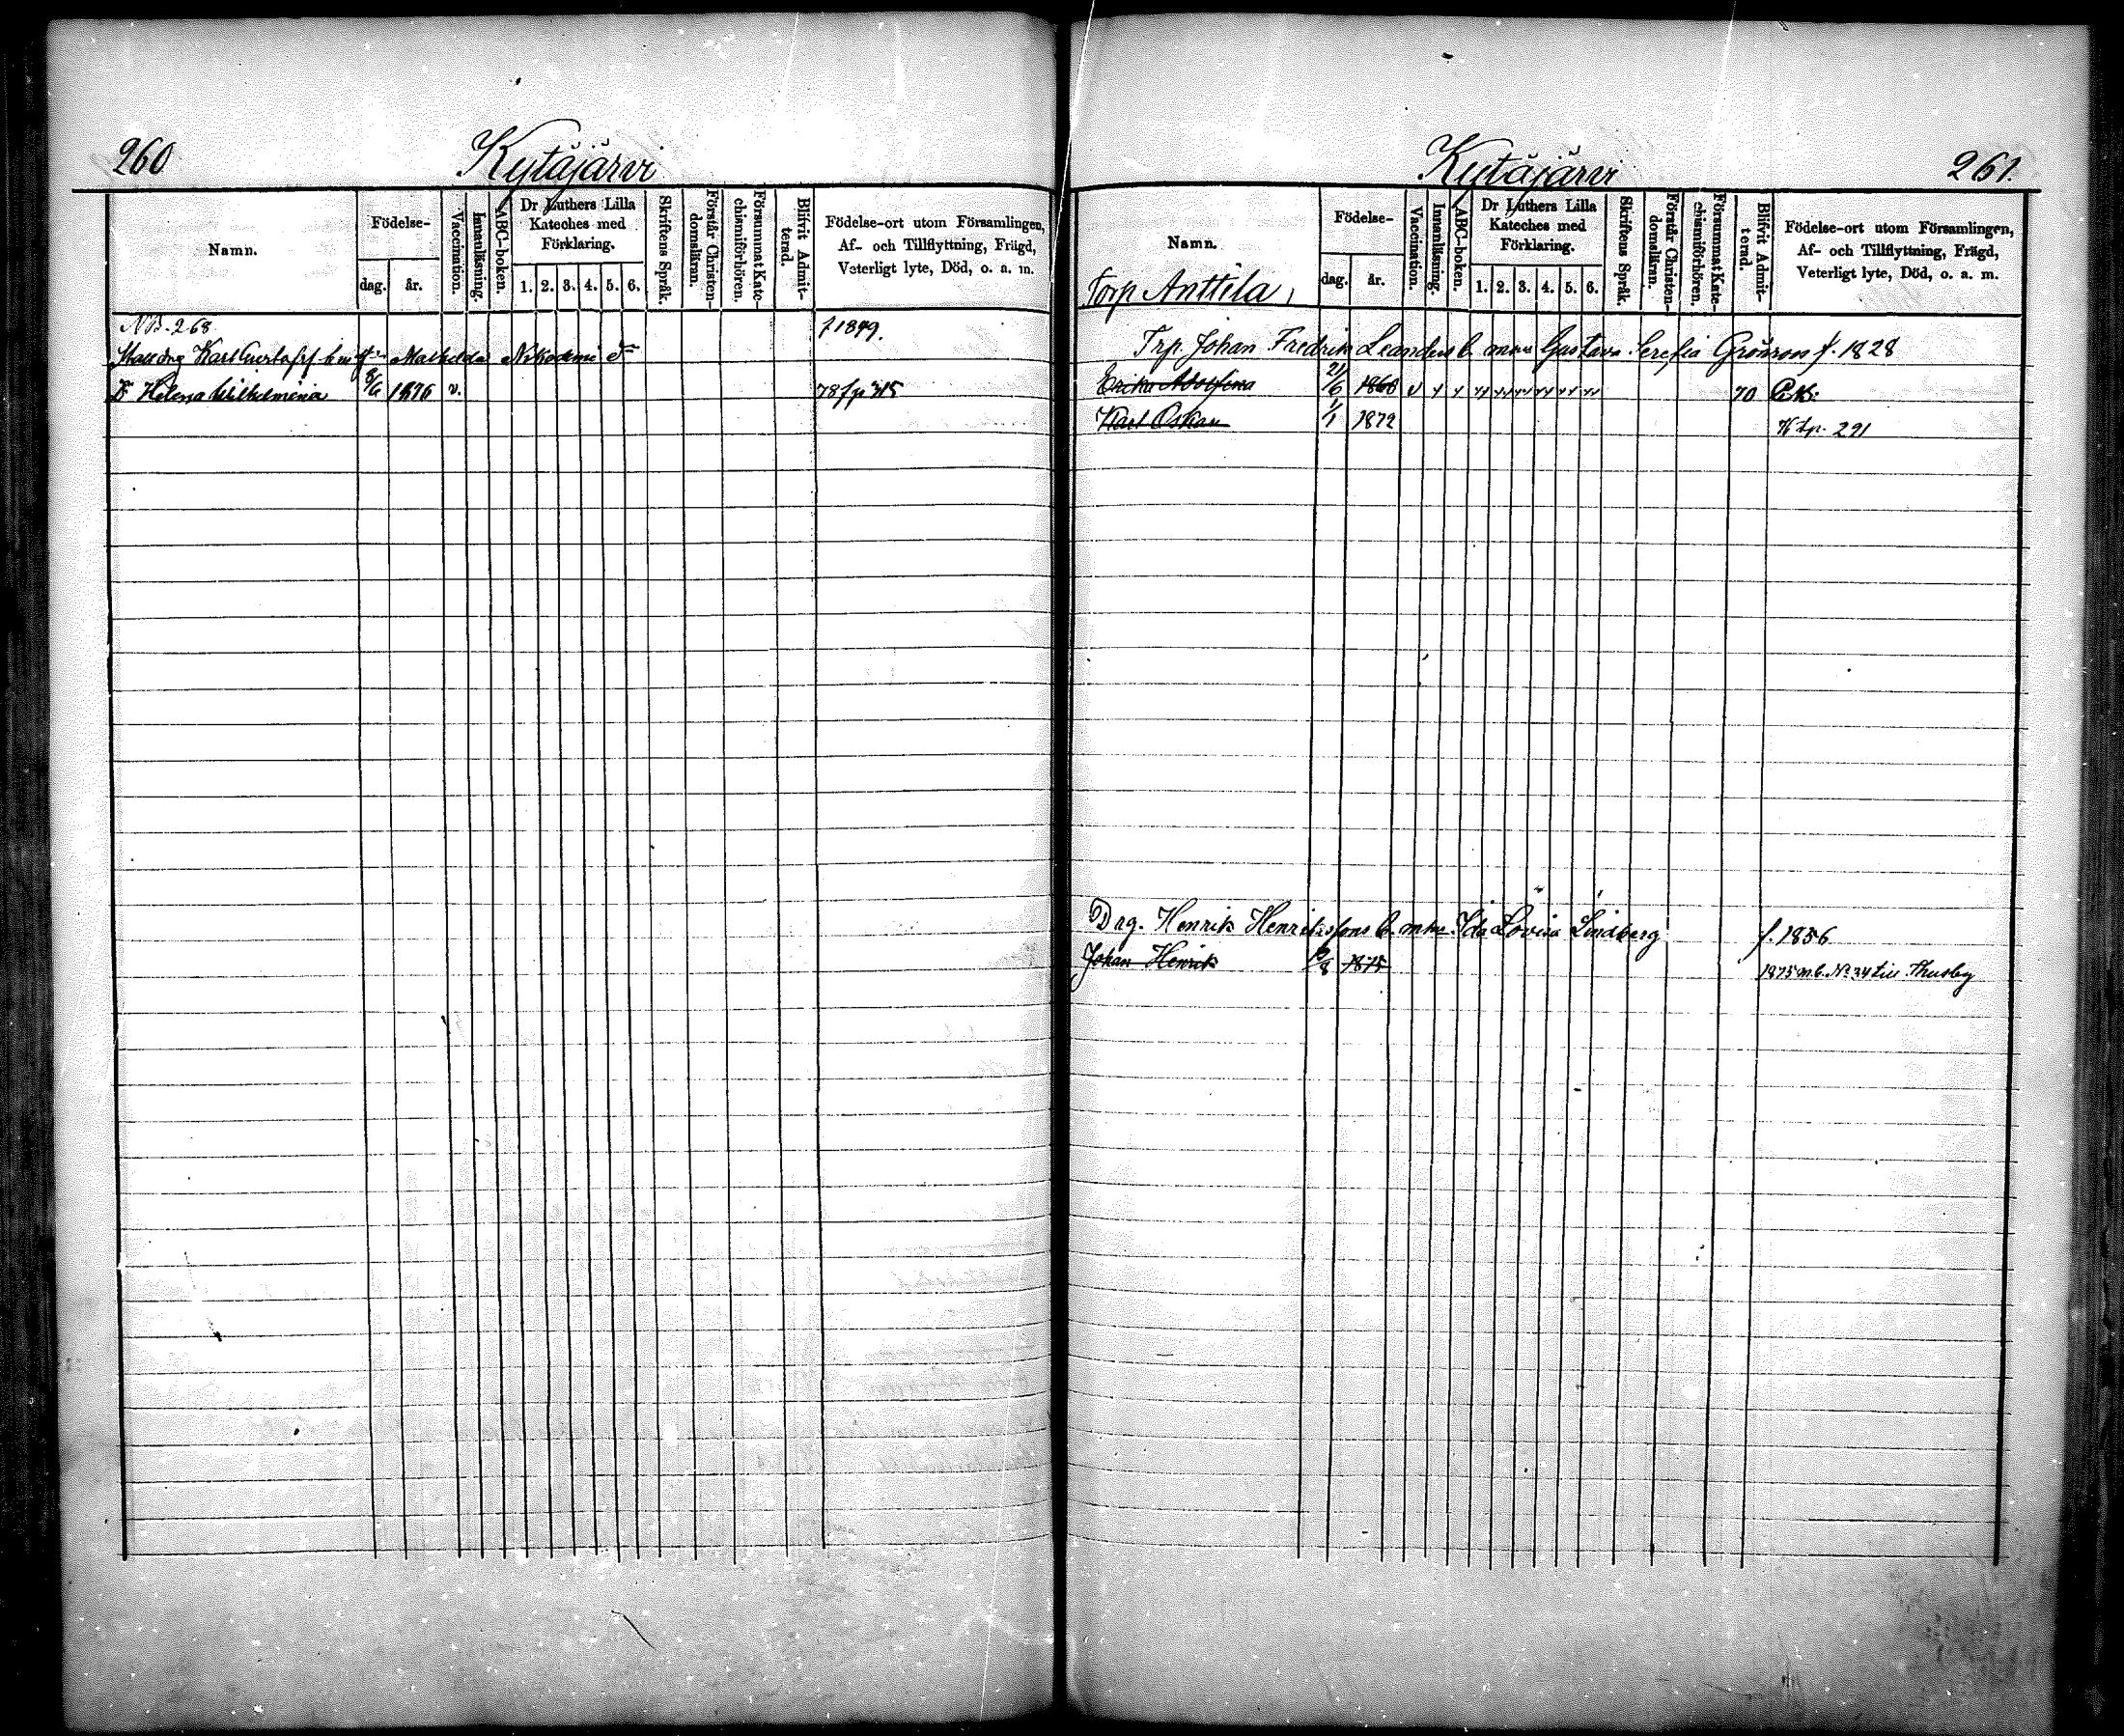 260
Kytäjärvi
Namn.
Födelse-
dag.
år.
Vaccination.
Innanläsning.
ABC-boken.
Dr Luthers Lilla
Kateches med
Förklaring.
1. 2. 3. 4. 5. 6.
Skriftens Språk.
Förstår Christen-
domsläran.
Försummat Kate-
chismiförhören.
Blifvit Admit-
terad.
Födelse-ort utom Församlingen,
Af- och Tillflyttning, Frägd,
Veterligt lyte, Död, o. a. m.
NB. 268
Karl Mathilda f 1849.
Dr Helena Wilhelmina 8/6 1876 v. 78 fp 315
Kytäjärvi
261.
Namn.
Torp Anttila
Födelse-
dag.
år.
Vaccination.
Innanläsning.
ABC-boken.
Dr Luthers Lilla
Kateches med
Förklaring.
1. 2. 3. 4. 5. 6.
Skriftens Språk.
Förstår Christen-
domsläran.
Försummat Kate-
chismiförhören.
Blifvit Admit-
terad.
Födelse-ort utom Församlingen,
Af- och Tillflyttning, Frägd,
Veterligt lyte, Död, o. a. m.
Trp. Johan Fredrik Leanders Gustava Serafia f. 1828
Erika Adolfina 21/6 1860 70
Karl Oskar 1/1 1872 291
Drg. Henrik Henrikssons b. Ida Lovisa Lindberg f. 1856
Johan Henrik 1875 1875 m.b. No 34 till Thusby